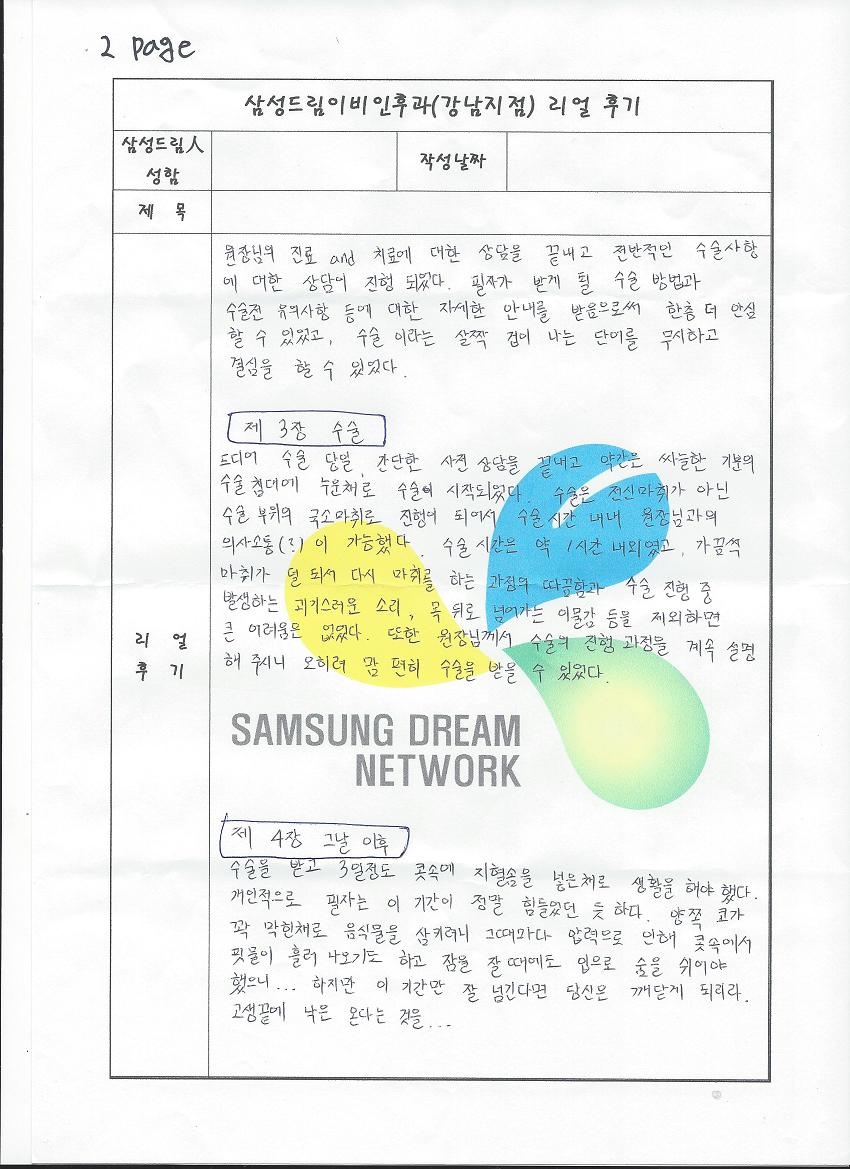 2 page
삼성드림이비인후과(강남지점) 리얼 후기
삼성드림人 성함
작성날짜
제 목
리 얼 후 기
원장님의 진료 and 치료에 대한 상담을 끝내고 전반적인 수술사항
에 대한 상담이 진행 되었다. 필자가 받게 될 수술 방법과
수술전 유의사항 등에 대한 자세한 안내를 받음으로써 한층 더 안심
할 수 있었고, 수술 이라는 살짝 겁이 나는 단어를 무시하고
결심을 할 수 있었다.
제 3장 수술
드디어 수술 당일, 간단한 사전 상담을 끝내고 약간은 싸늘한 기분의
수술침대에 누운채로 수술이 시작되었다. 수술은 전신마취가 아닌
수술 부위의 국소마취로 진행이 되어서 수술시간 내내 원장님과의
의사소통(?)이 가능했다. 수술시간은 약 1시간 내외였고, 가끔씩
마취가 덜 되서 다시 마취를 하는 과정의 따끔함과 수술 진행 중
발생하는 괴기스러운 소리, 목 뒤로 넘어가는 이물감 등을 제외하면
큰 어려움은 없었다. 또한 원장님께서 수술의 진행 과정을 계속 설명
해 주시니 오히려 맘 편히 수술을 받을 수 있었다.
SAMSUNG DREAM
NETWORK
제 4장 그날 이후
수술을 받고 3일정도 콧속에 지혈솜을 넣은채로 생활을 해야 했다.
개인적으로 필자는 이 기간이 정말 힘들었던 듯 하다. 양쪽 코가
꽉 막힌채로 음식물을 삼키려니 그때마다 압력으로 인해 콧속에서
핏물이 흘러 나오기도 하고 잠을 잘 때에도 입으로 숨을 쉬어야
했으니... 하지만 이 기간만 잘 넘긴다면 당신은 깨닫게 되리라.
고생끝에 낙은 온다는 것을...